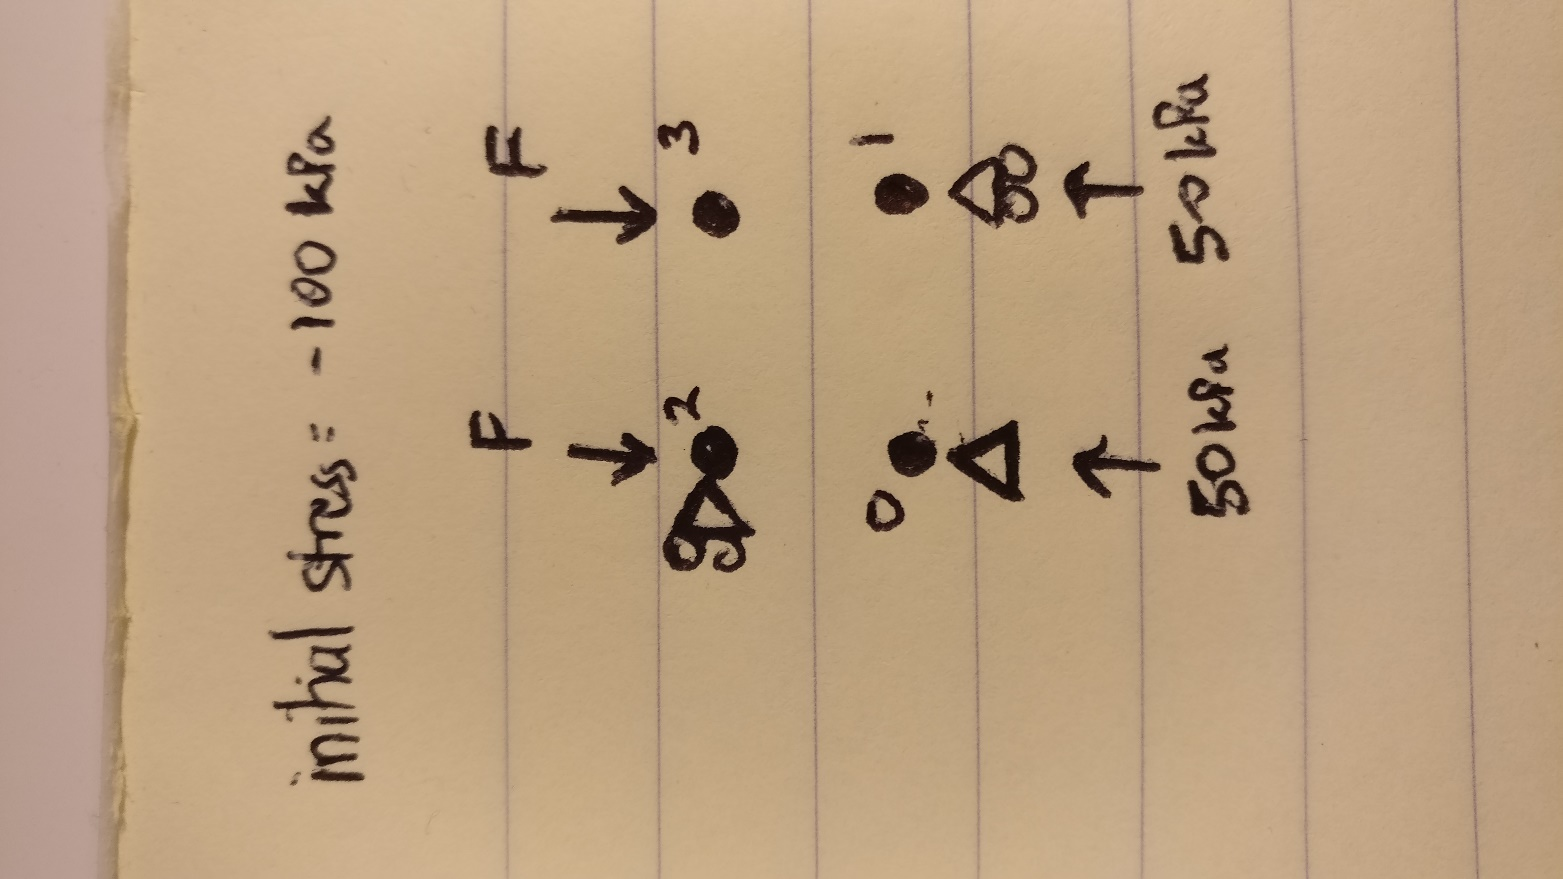 initial stress = -100 kPa
F F
2 3
0 1
50 kPa 50 kPa